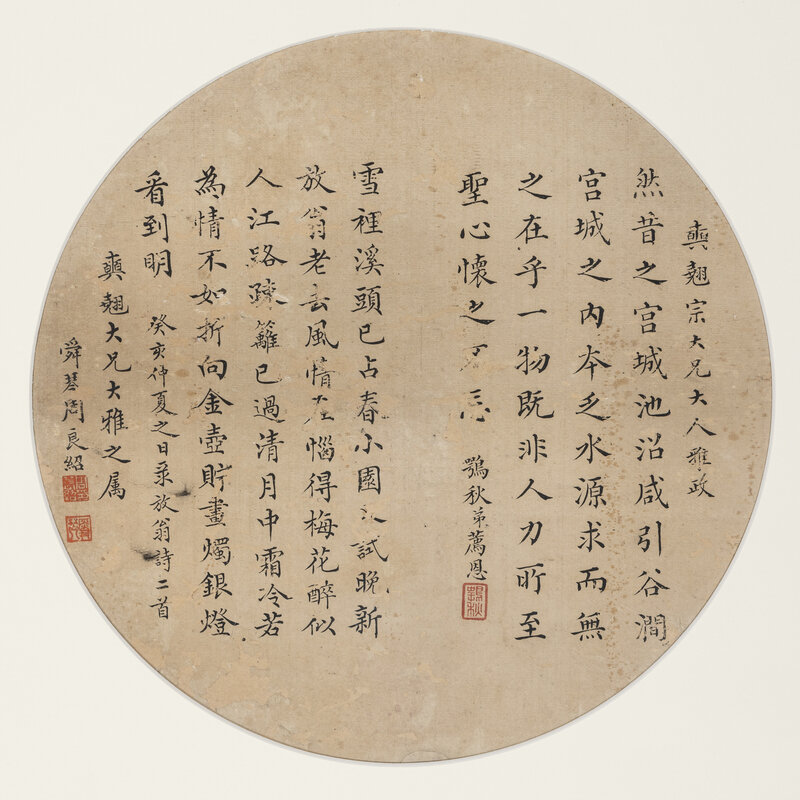 奭翹宗大兄大人雅政
然昔之宮城池沼咸引谷澗
宮城之内本乏水源求而無
之在乎一物既非人力所至
聖心懷之
鶚秋弟薦恩
鶚秋
雪裡溪頭已占春小園又試晚新
放翁老去風情在惱得梅花醉似
人江路疎籬已過清月中霜冷若
為情不如折向金壺貯畫燭銀燈
看到明 癸亥仲夏之日录放翁詩二首
奭翹大兄大雅之属
舜琴周良紹